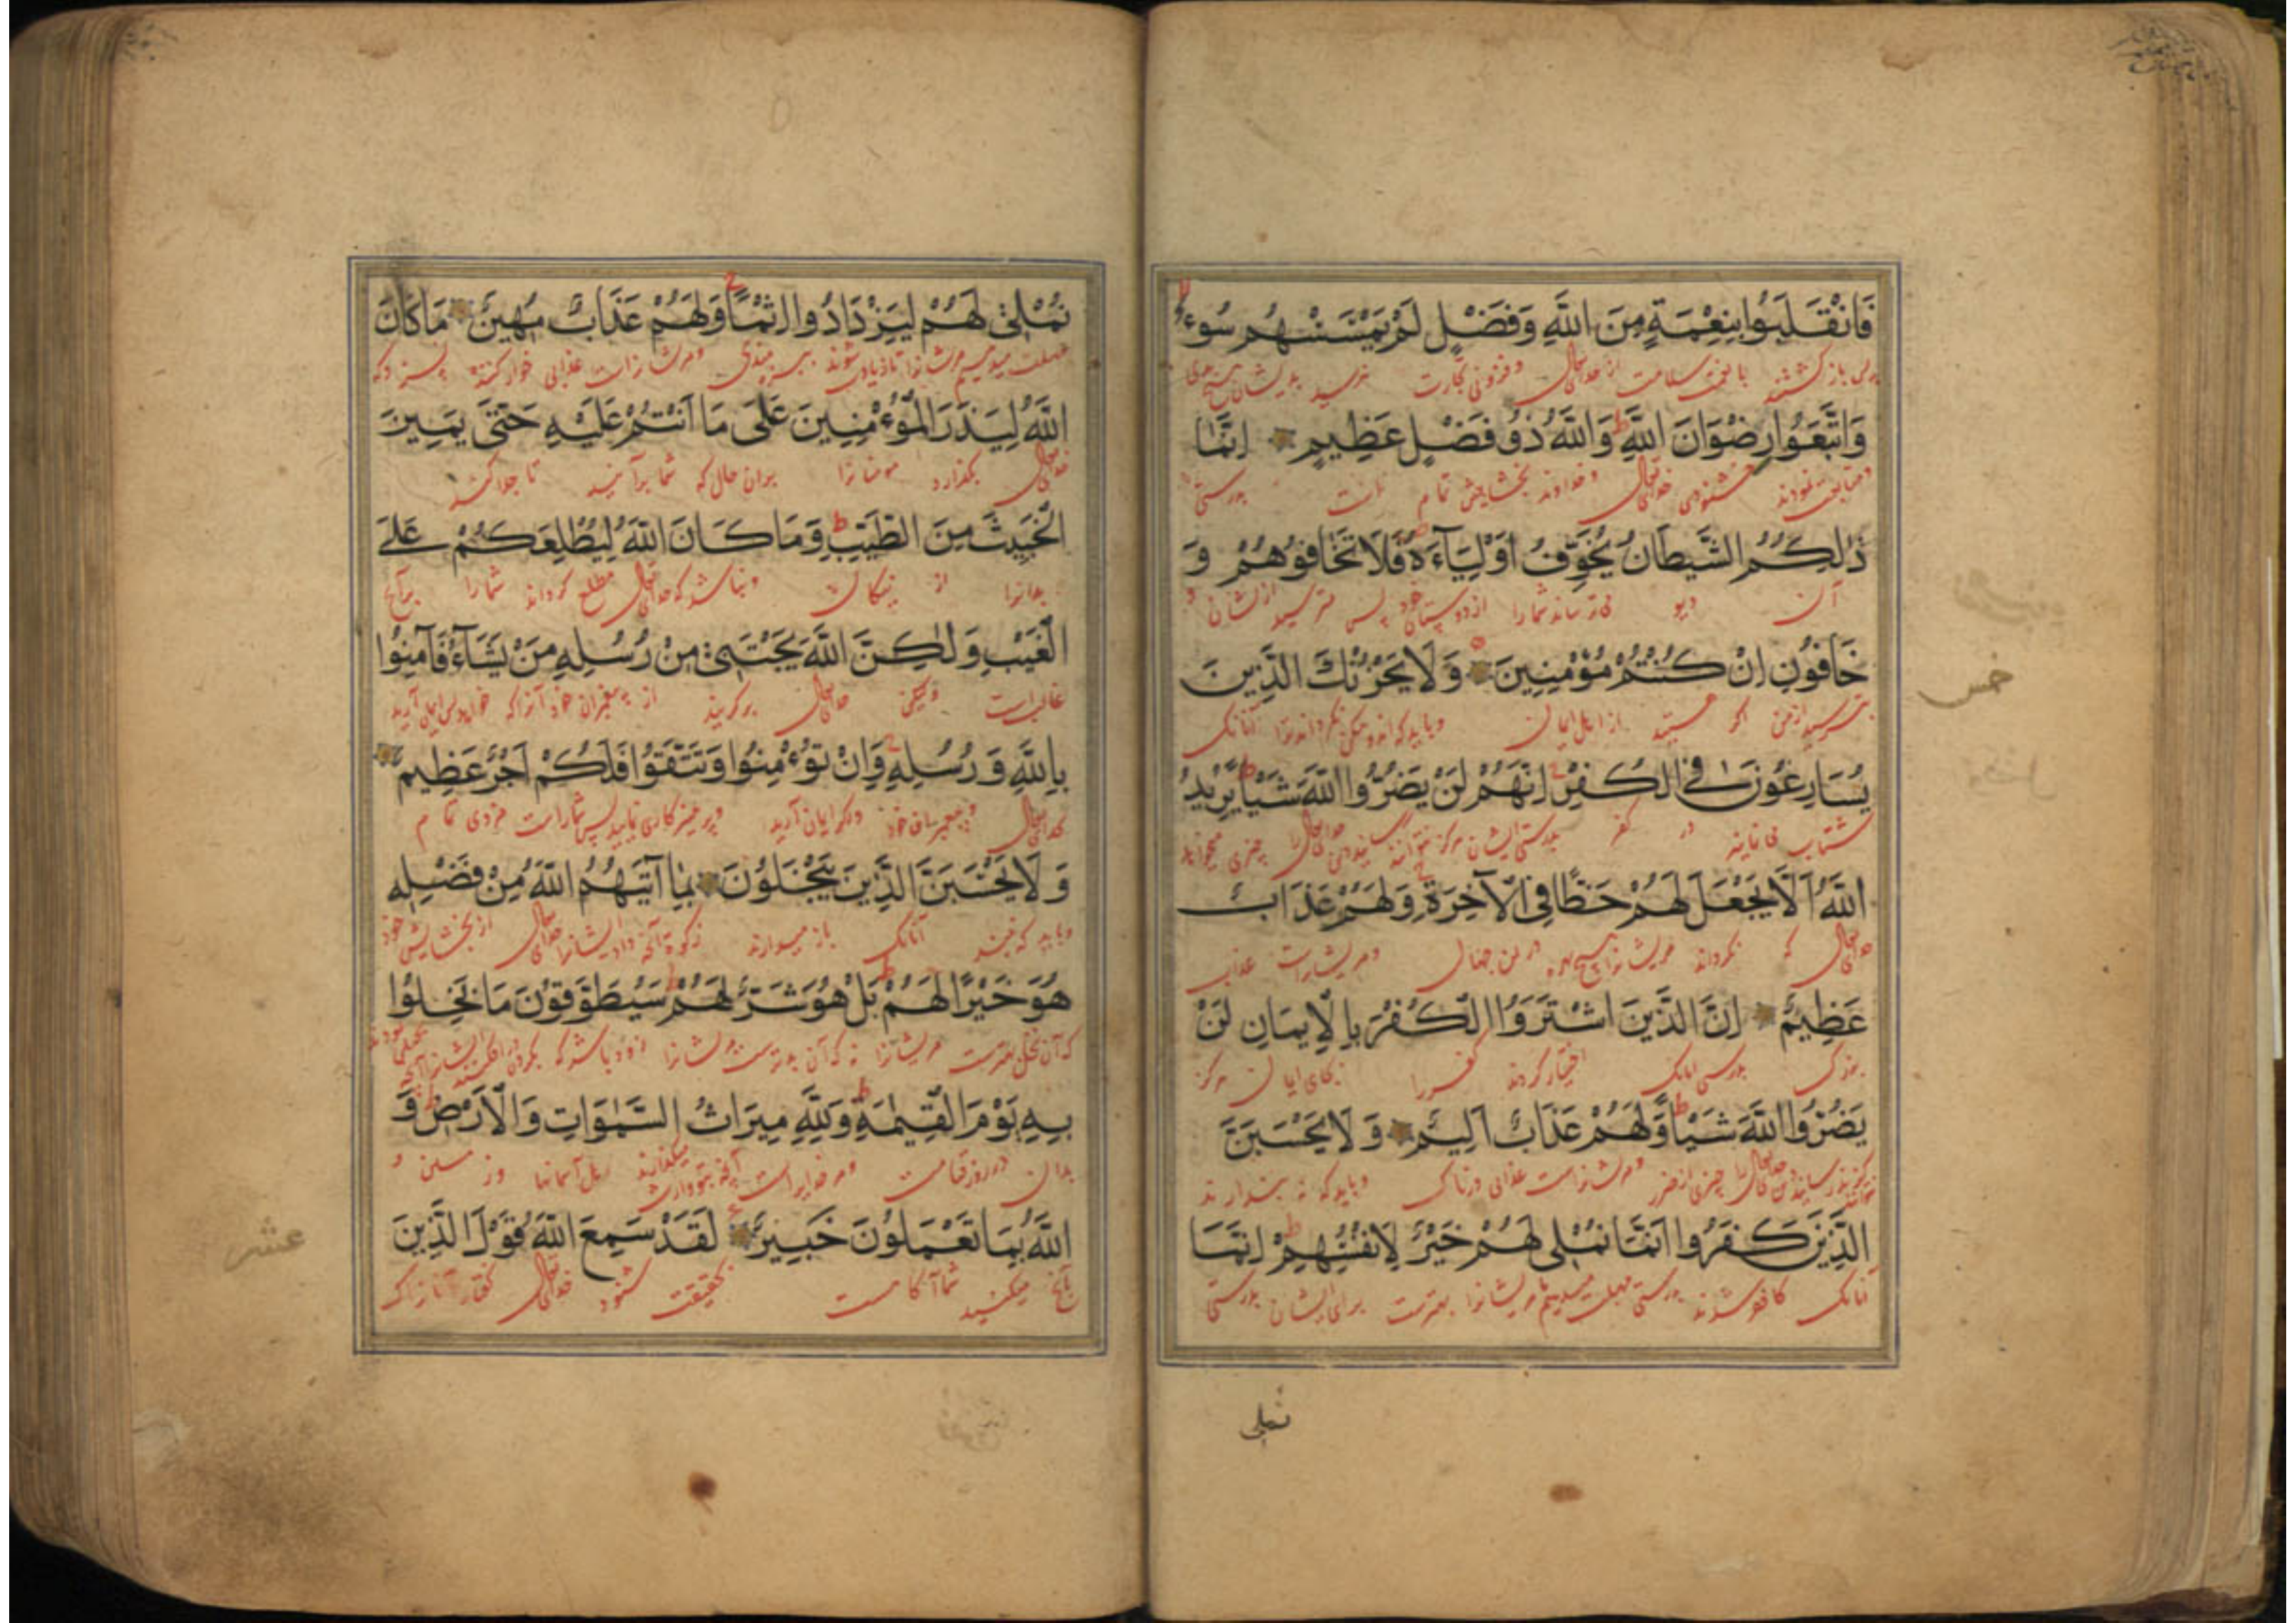 فَانْقَلَبُوا بِنِعْمَةٍ مِنَ اللَّهِ وَفَضْلٍ لَمْ يَمْسَسْهُمْ سُوءٌ
باز گشتند با نعمت سلامت از خدایتعالی و فزونی تجارت نرسید بدیشان هیچ
وَاتَّبَعُوا رِضْوَانَ اللَّهِ وَاللَّهُ ذُو فَضْلٍ عَظِيمٍ اِنَّمَا
و متابعت نمودند خشنودی خدایتعالی و خداوند بخشایش تمام است بدرستی
ذٰلِكُمُ الشَّيْطَانُ يُخَوِّفُ اَوْلِيَآءَهُ فَلَا تَخَافُوهُمْ وَ
آن دیو می ترساند شما را از دوستان خود پس مترسید از یشان و
خَافُونِ اِنْ كُنْتُمْ مُؤْمِنِينَ وَلَا يَحْزُنْكَ الَّذِينَ
بترسید از من اگر هستید از اهل ایمان و باید که اندوهگین نگرداند ترا آنانک
يُسَارِعُونَ فِي الْكُفْرِ اِنَّهُمْ لَنْ يَضُرُّوا اللَّهَ شَيْئًا يُرِيدُ
شتاب می نمایند در کفر بدرستی ایشان هرگز نتوانند خدایتعالی را چیزی میخواهد
اللَّهُ اَلَّا يَجْعَلَ لَهُمْ حَظًّا فِي الْآخِرَةِ وَلَهُمْ عَذَابٌ
خدایتعالی که نگرداند مریشانرا هیچ بهره در آن جهان و مریشانراست عذاب
عَظِيمٌ اِنَّ الَّذِينَ اشْتَرَوُا الْكُفْرَ بِالْاِيمَانِ لَنْ
بزرگ بدرستی آنانک اختیار کردند کفر را بجای ایمان هرگز
يَضُرُّوا اللَّهَ شَيْئًا وَلَهُمْ عَذَابٌ اَلِيمٌ وَلَا يَحْسَبَنَّ
خدایتعالی را چیزی از ضرر و مریشانراست عذابی دردناک و باید که نه پندارند
الَّذِينَ كَفَرُوا اَنَّمَا نُمْلِي لَهُمْ خَيْرٌ لِاَنْفُسِهِمْ اِنَّمَا
آنانک کافر شدند بدرستی مهلت میدهیم مریشانرا بهترست برای ایشان بدرستی
نملی
خمس
نُمْلِي لَهُمْ لِيَزْدَادُوا اِثْمًا وَلَهُمْ عَذَابٌ مُهِينٌ مَا كَانَ
مهلت میدهیم مریشانرا تا زیاده شوند و مریشانراست عذابی خوار کننده نسزد که
اللَّهُ لِيَذَرَ الْمُؤْمِنِينَ عَلَى مَا اَنْتُمْ عَلَيْهِ حَتَّى يَمِيزَ
خدایتعالی بگذارد مومنانرا بران حال که شما برآنید تا جدا کند
الْخَبِيثَ مِنَ الطَّيِّبِ وَمَا كَانَ اللَّهُ لِيُطْلِعَكُمْ عَلَى
بدانرا از نیکان و نباشد که خدایتعالی مطلع گرداند شما را برآنچ
الْغَيْبِ وَلٰكِنَّ اللَّهَ يَجْتَبِي مِنْ رُسُلِهِ مَنْ يَشَآءُ فَآمِنُوا
غایب است ولیکن خدایتعالی برگزیند از پیغمبران خود آنرا که خواهد پس ایمان آرید
بِاللَّهِ وَرُسُلِهِ وَاِنْ تُؤْمِنُوا وَتَتَّقُوا فَلَكُمْ اَجْرٌ عَظِيمٌ
بخدایتعالی و پیغمبران خود و اگر ایمان آرید و پرهیزکاری نمایید پس شما راست مزدی تمام
وَلَا يَحْسَبَنَّ الَّذِينَ يَبْخَلُونَ بِمَا آتَيهُمُ اللَّهُ مِنْ فَضْلِهِ
و باید که آنانک باز میدارند زکوة آنچه داد ایشانرا خدایتعالی از بخشایش خود
هُوَ خَيْرًا لَهُمْ بَلْ هُوَ شَرٌّ لَهُمْ سَيُطَوَّقُونَ مَا بَخِلُوا
که آن بخل بهترست مریشانرا نه که آن بدترست مریشانرا زود باشد که
بِهِ يَوْمَ الْقِيٰمَةِ وَلِلَّهِ مِيرَاثُ السَّمٰوَاتِ وَالْاَرْضِ وَ
بدان در روز قیامت و مر خدایراست اهل آسمانها و زمین و
اللَّهُ بِمَا تَعْمَلُونَ خَبِيرٌ لَقَدْ سَمِعَ اللَّهُ قَوْلَ الَّذِينَ
بآنچ میکنید شما آگاهست بحقیقت شنود خدایتعالی گفتار آنانرا که
عشر